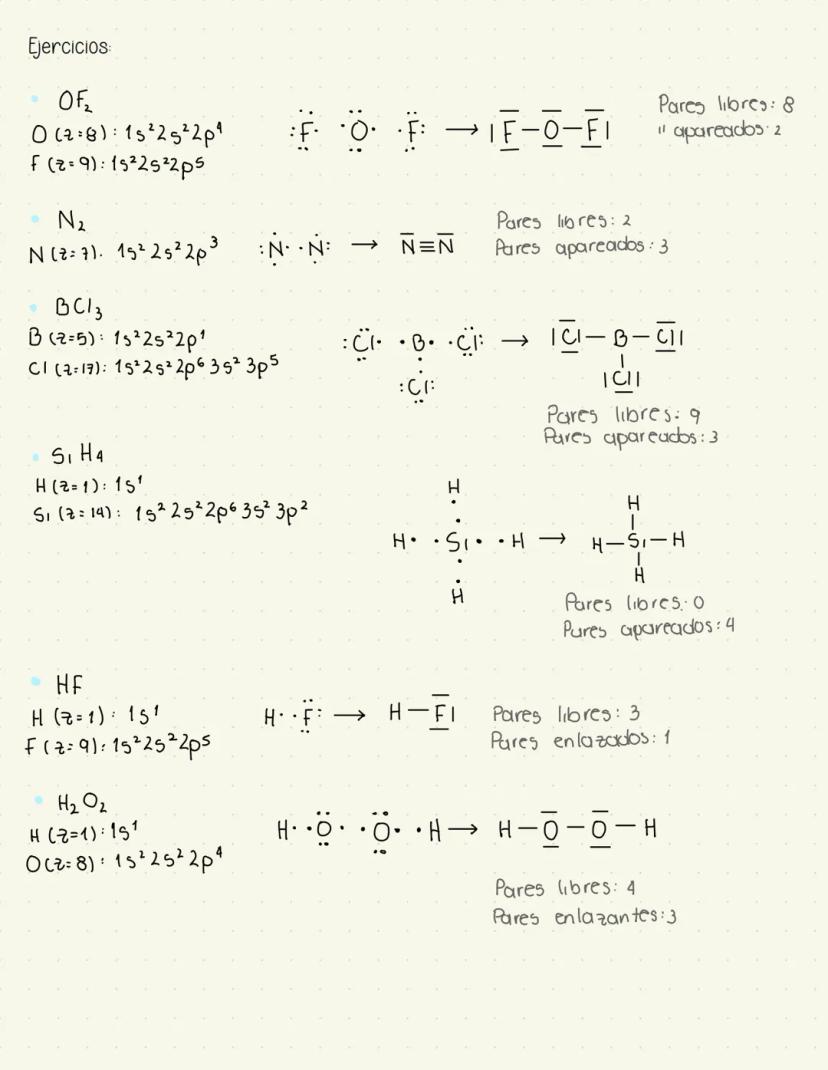 Ejercicios:
• OF₂
O (z=8): 1s²2s²2p⁴
F (z=9): 1s²2s²2p⁵
:F· ·O· ·F: → |F–O–F|
Pares libres: 8
" apareados: 2
• N₂
N (z=7). 1s² 2s² 2p³
:N· ·N: → N≡N
Pares libres: 2
Pares apareados: 3
• BCl₃
B (z=5): 1s²2s²2p¹
Cl (z=17): 1s²2s²2p⁶3s²3p⁵
:Cl· ·B· ·Cl: → |Cl–B–Cl|
:Cl: |Cl|
Pares libres: 9
Pares apareados: 3
• SiH₄
H (z=1): 1s¹
Si (z=14): 1s² 2s² 2p⁶ 3s² 3p²
H H
H· ·Si· ·H → H–Si–H
H H
Pares libres: 0
Pares apareados: 4
• HF
H (z=1): 1s¹
F (z=9): 1s²2s²2p⁵
H· ·F: → H–F|
Pares libres: 3
Pares enlazados: 1
• H₂O₂
H (z=1): 1s¹
O (z=8): 1s² 2s² 2p⁴
H· ·O· ·O· ·H → H–O–O–H
Pares libres: 4
Pares enlazantes: 3